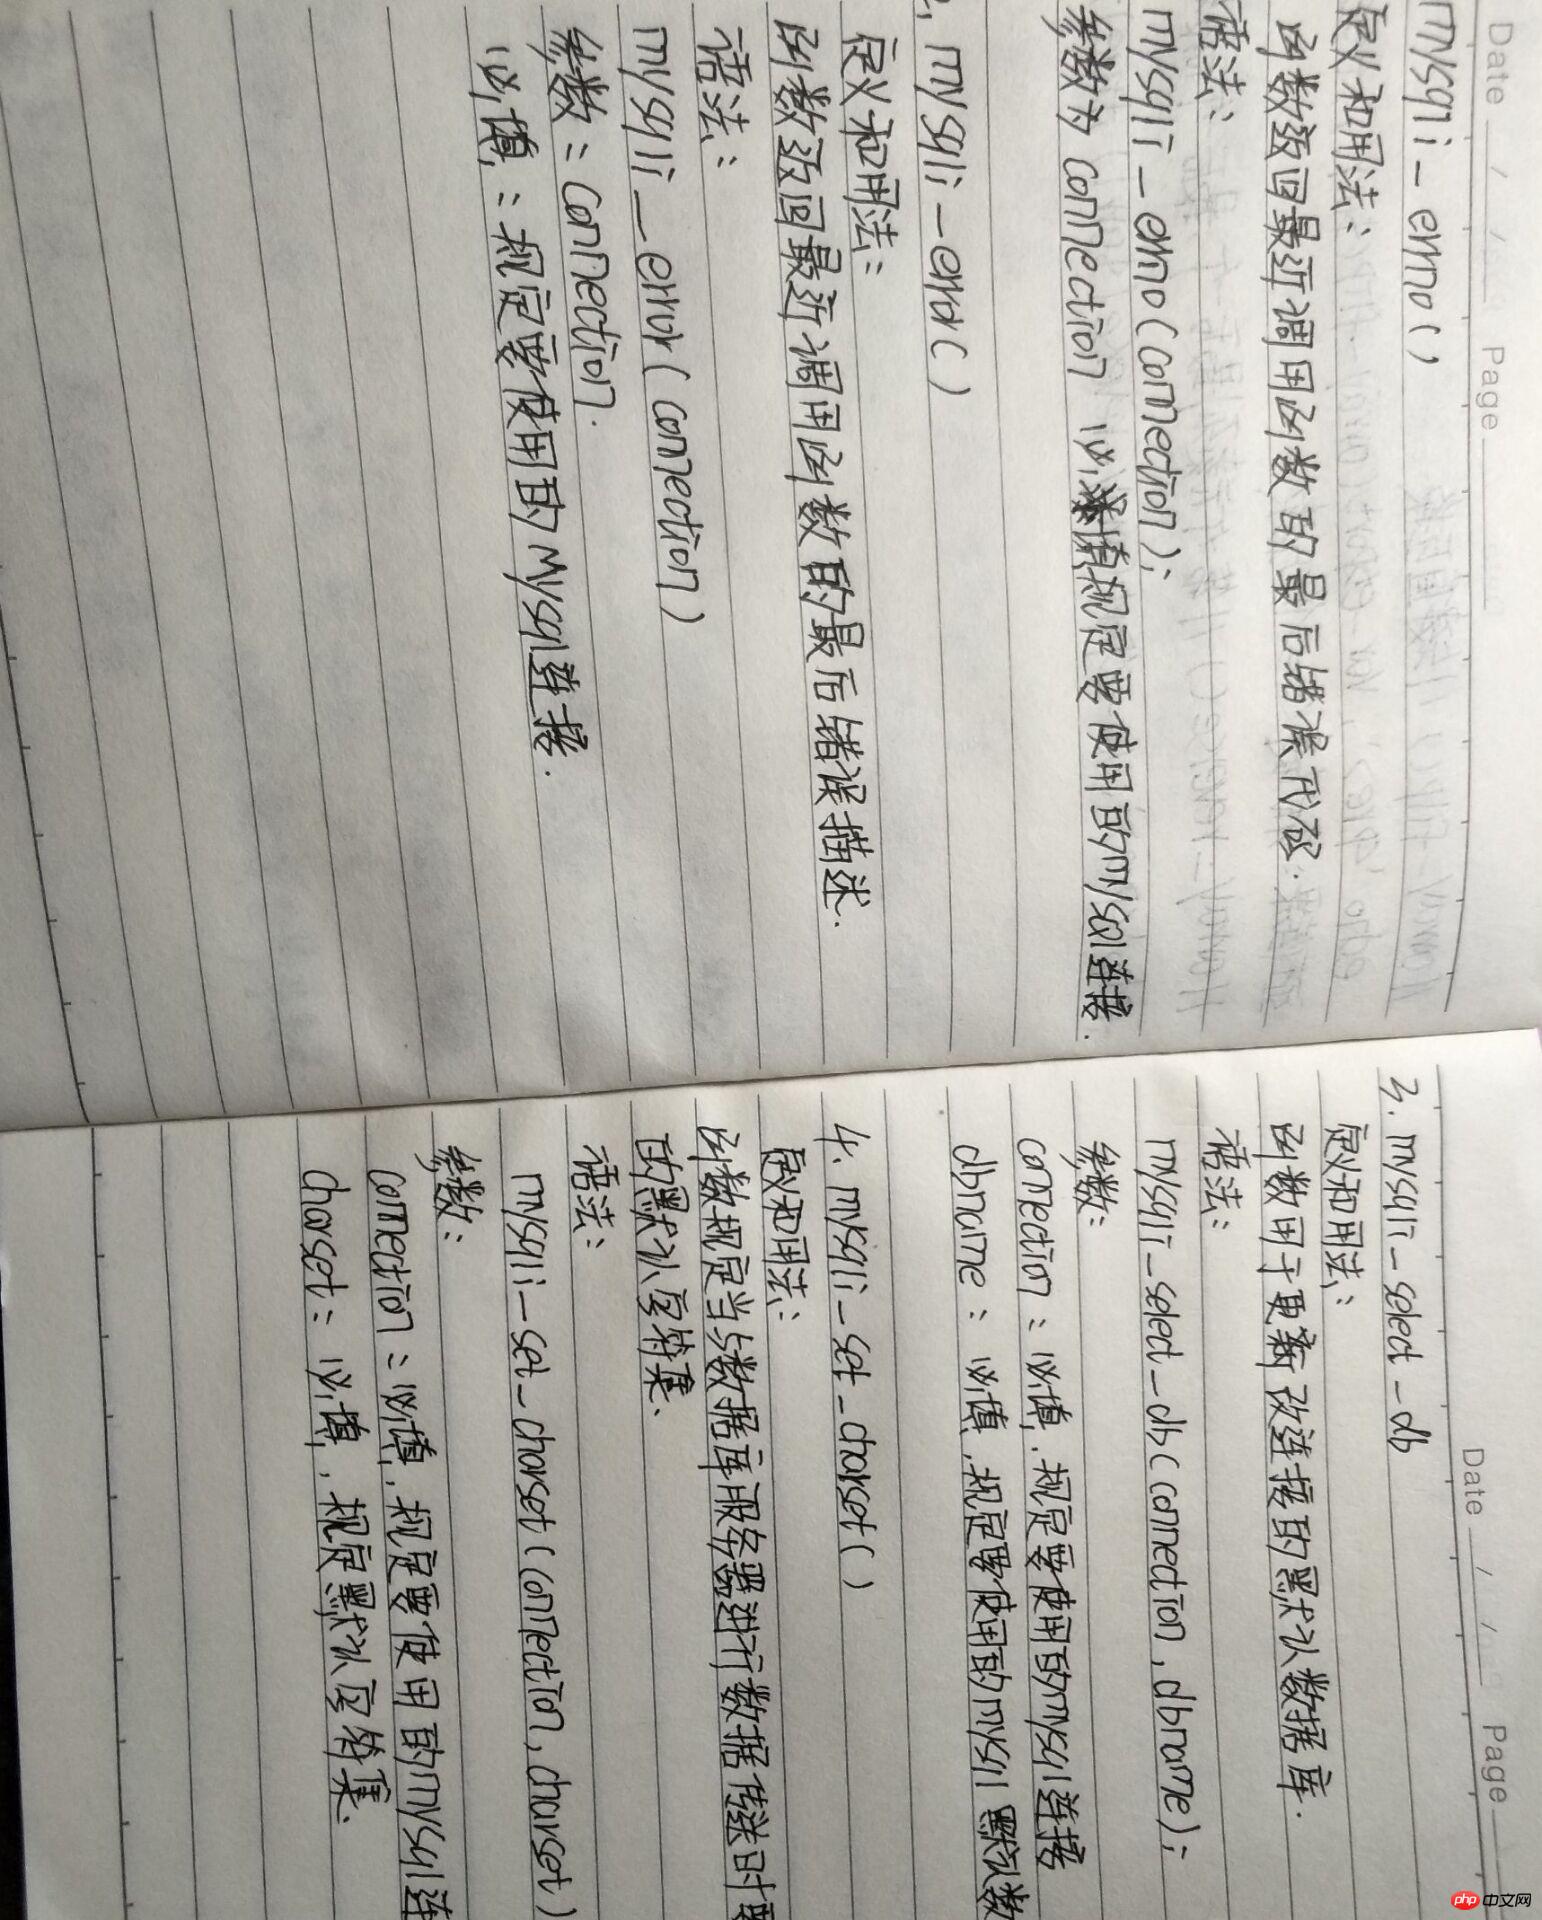 Date / / Page
mysqli_errno()
定义和用法:
函数返回最近调用函数的最后错误代码.
语法:
mysqli_errno(connection);
参数为 connection 必填规定要使用的mysql连接.
mysqli_error()
定义和用法:
函数返回最近调用函数的最后错误描述.
语法:
mysqli_error(connection)
参数:connection.
必填:规定要使用的Mysql连接.
Date / / Page
3. mysqli_select_db
定义和用法:
函数用于更新改连接的默认数据库.
语法:
mysqli_select_db(connection,dbname);
参数:
connection:必填,规定要使用的mysql连接
dbname:必填,规定要使用的mysql 默认数
4、mysqli_set_charset()
定义和用法:
函数规定当与数据库服务器进行数据传送时要
的默认字符集、
语法:
mysqli_set_charset(connection,charset)
参数:
connection:必填,规定要使用的mysql连
charset:必填,规定默认字符集.
php 中文网